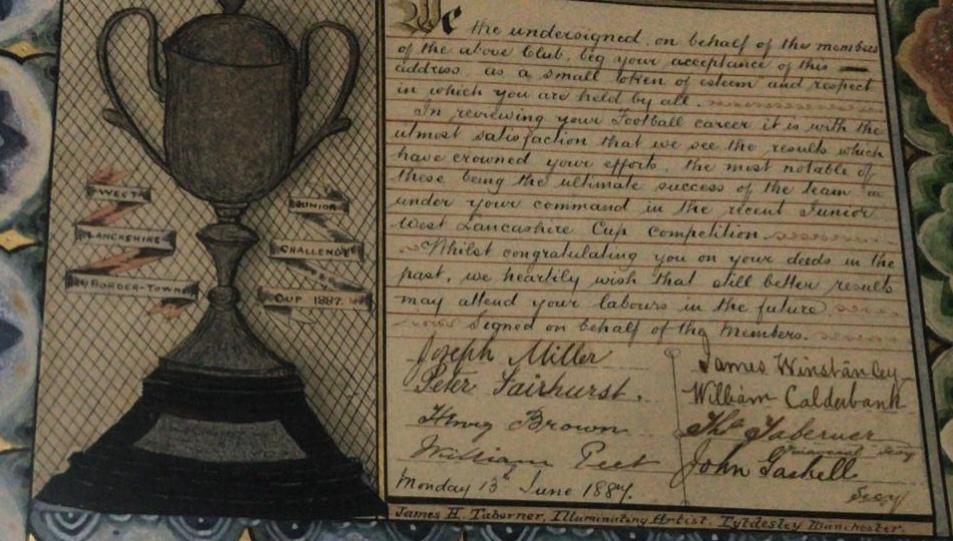 WEST
LANCASHIRE
& BORDER-TOWNS
JUNIOR
CHALLENGE
CUP 1887.
We the undersigned, on behalf of the members
of the above Club, beg your acceptance of this
address, as a small token of esteem and respect
in which you are held by all.
In reviewing your Football career it is with the
utmost satisfaction that we see the results which
have crowned your efforts, the most notable of
these being the ultimate success of the team
under your command in the recent Junior
West Lancashire Cup competition.
Whilst congratulating you on your deeds in the
past, we heartily wish that still better results
may attend your labours in the future
Signed on behalf of the Members.
Joseph Miller
Peter Fairhurst.
Henry Brown
William Peet
Monday 13th June 1887.
James Winstanley
William Calderbank
Thos Taberner
Financial Secy
John Gaskell
Secy
James H. Taberner, Illuminating Artist, Tyldesley Manchester.